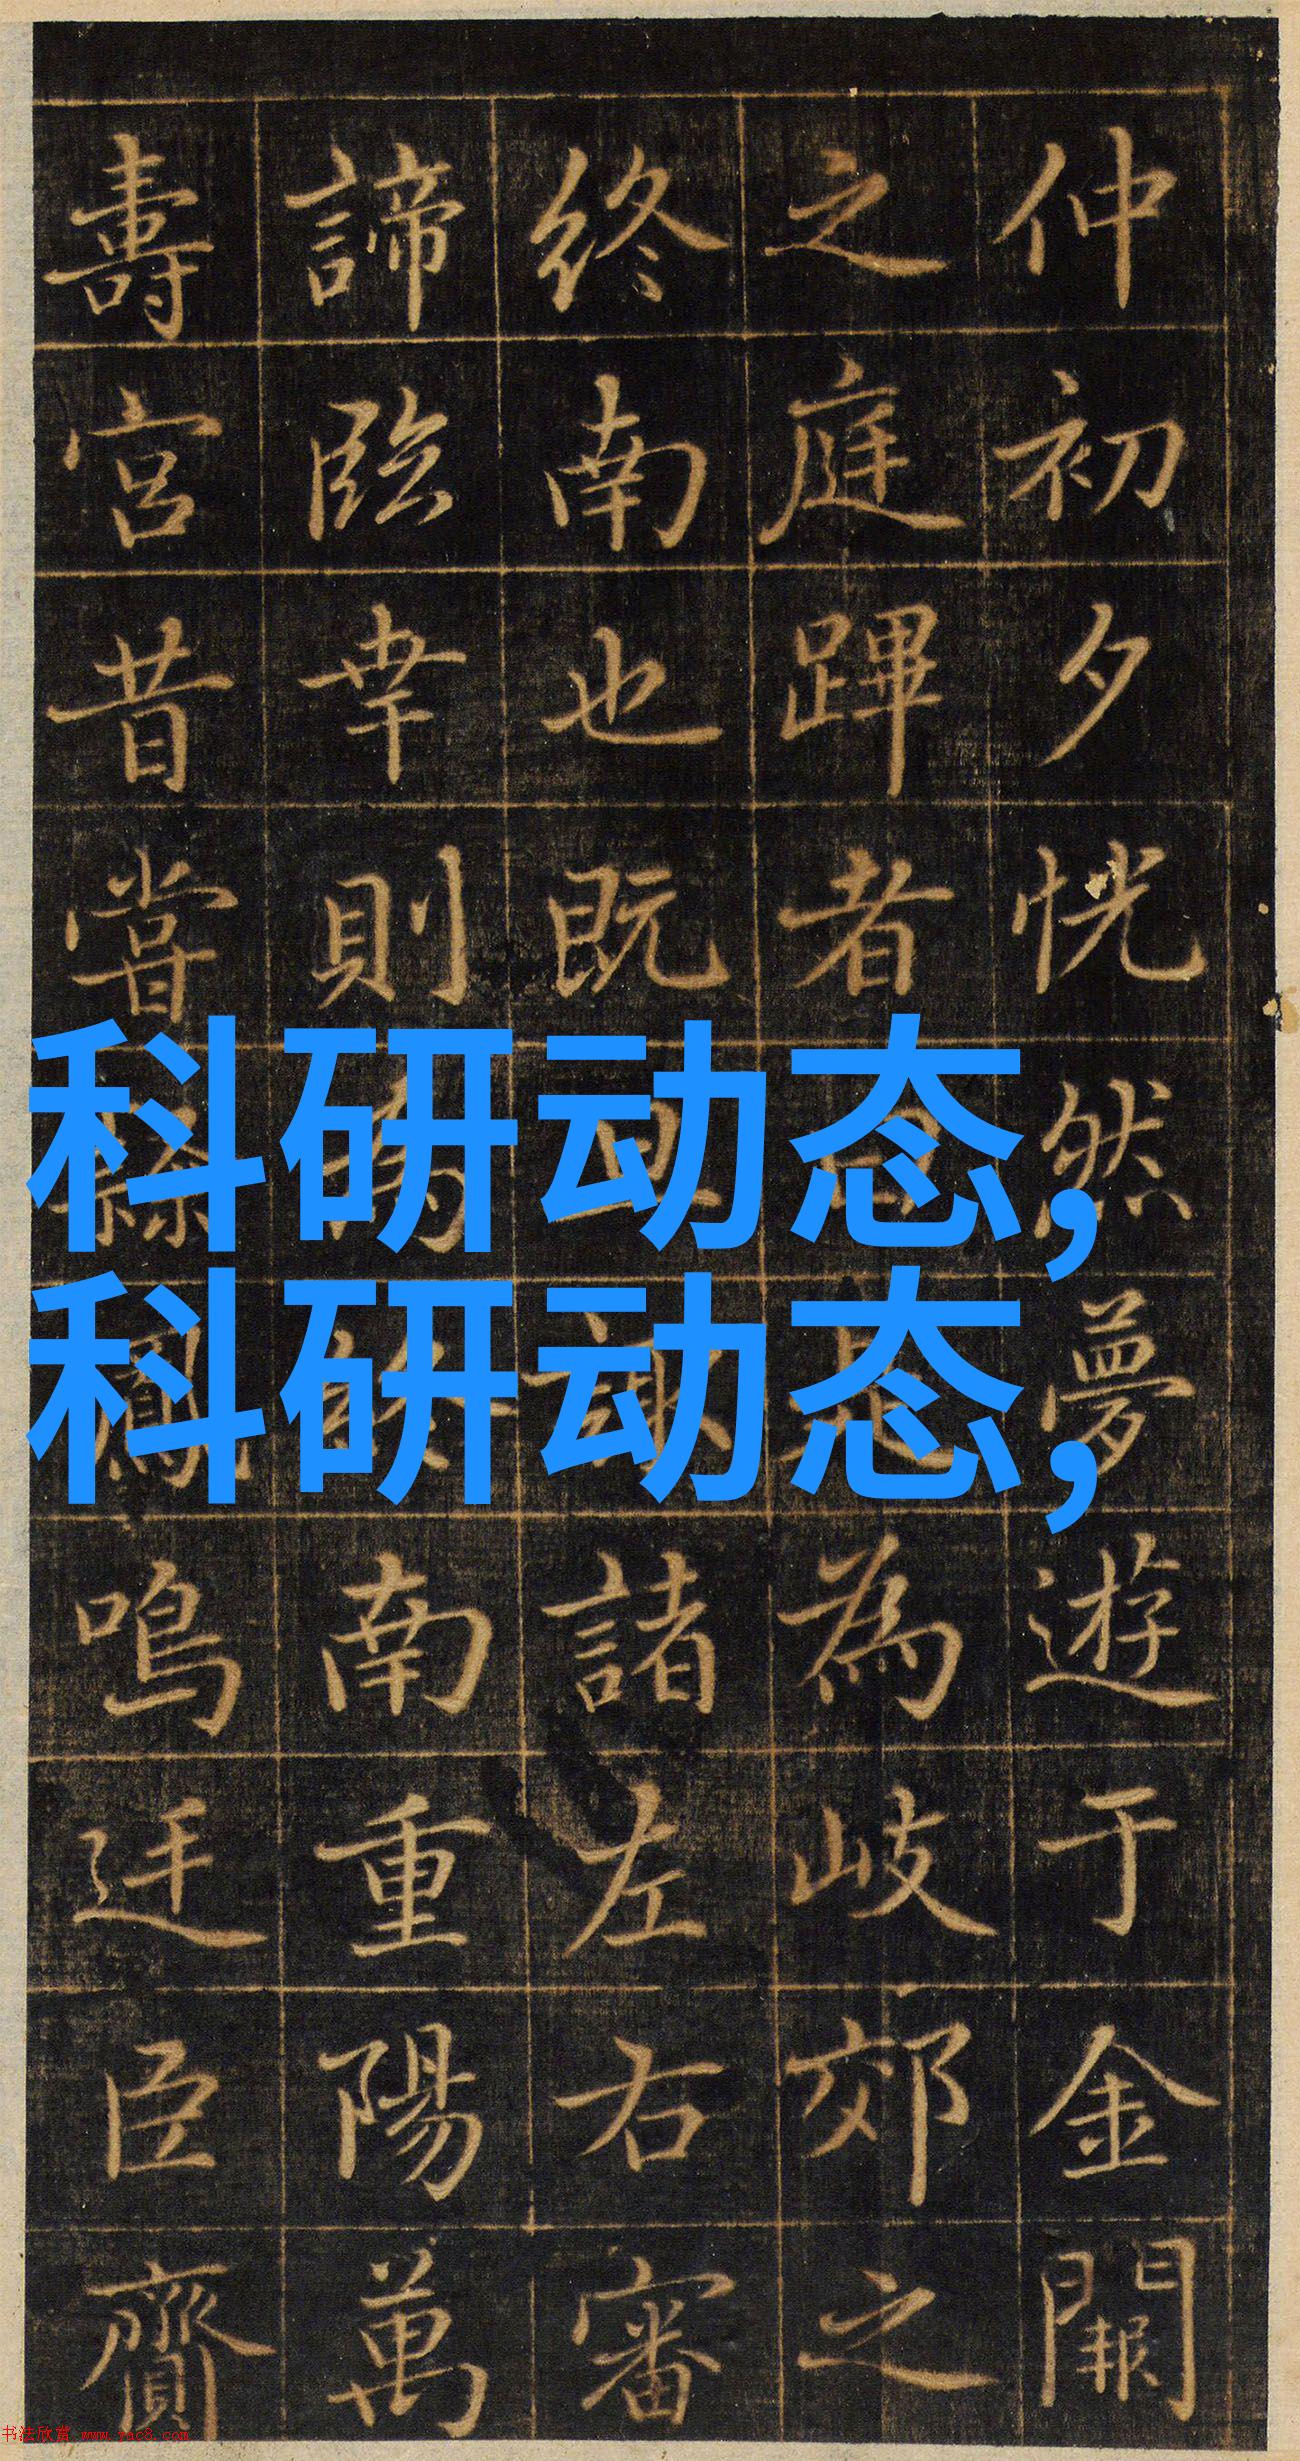 仲初夕恍然夢遊于金闕
之庭蹕者曰是為岐郊之
終南也既諸左右審
諦臨幸則為南重陽萬
壽宮昔嘗鳳鳴廷臣齎
科研动态,
科研动态,
书法欣赏 www.yac8.com